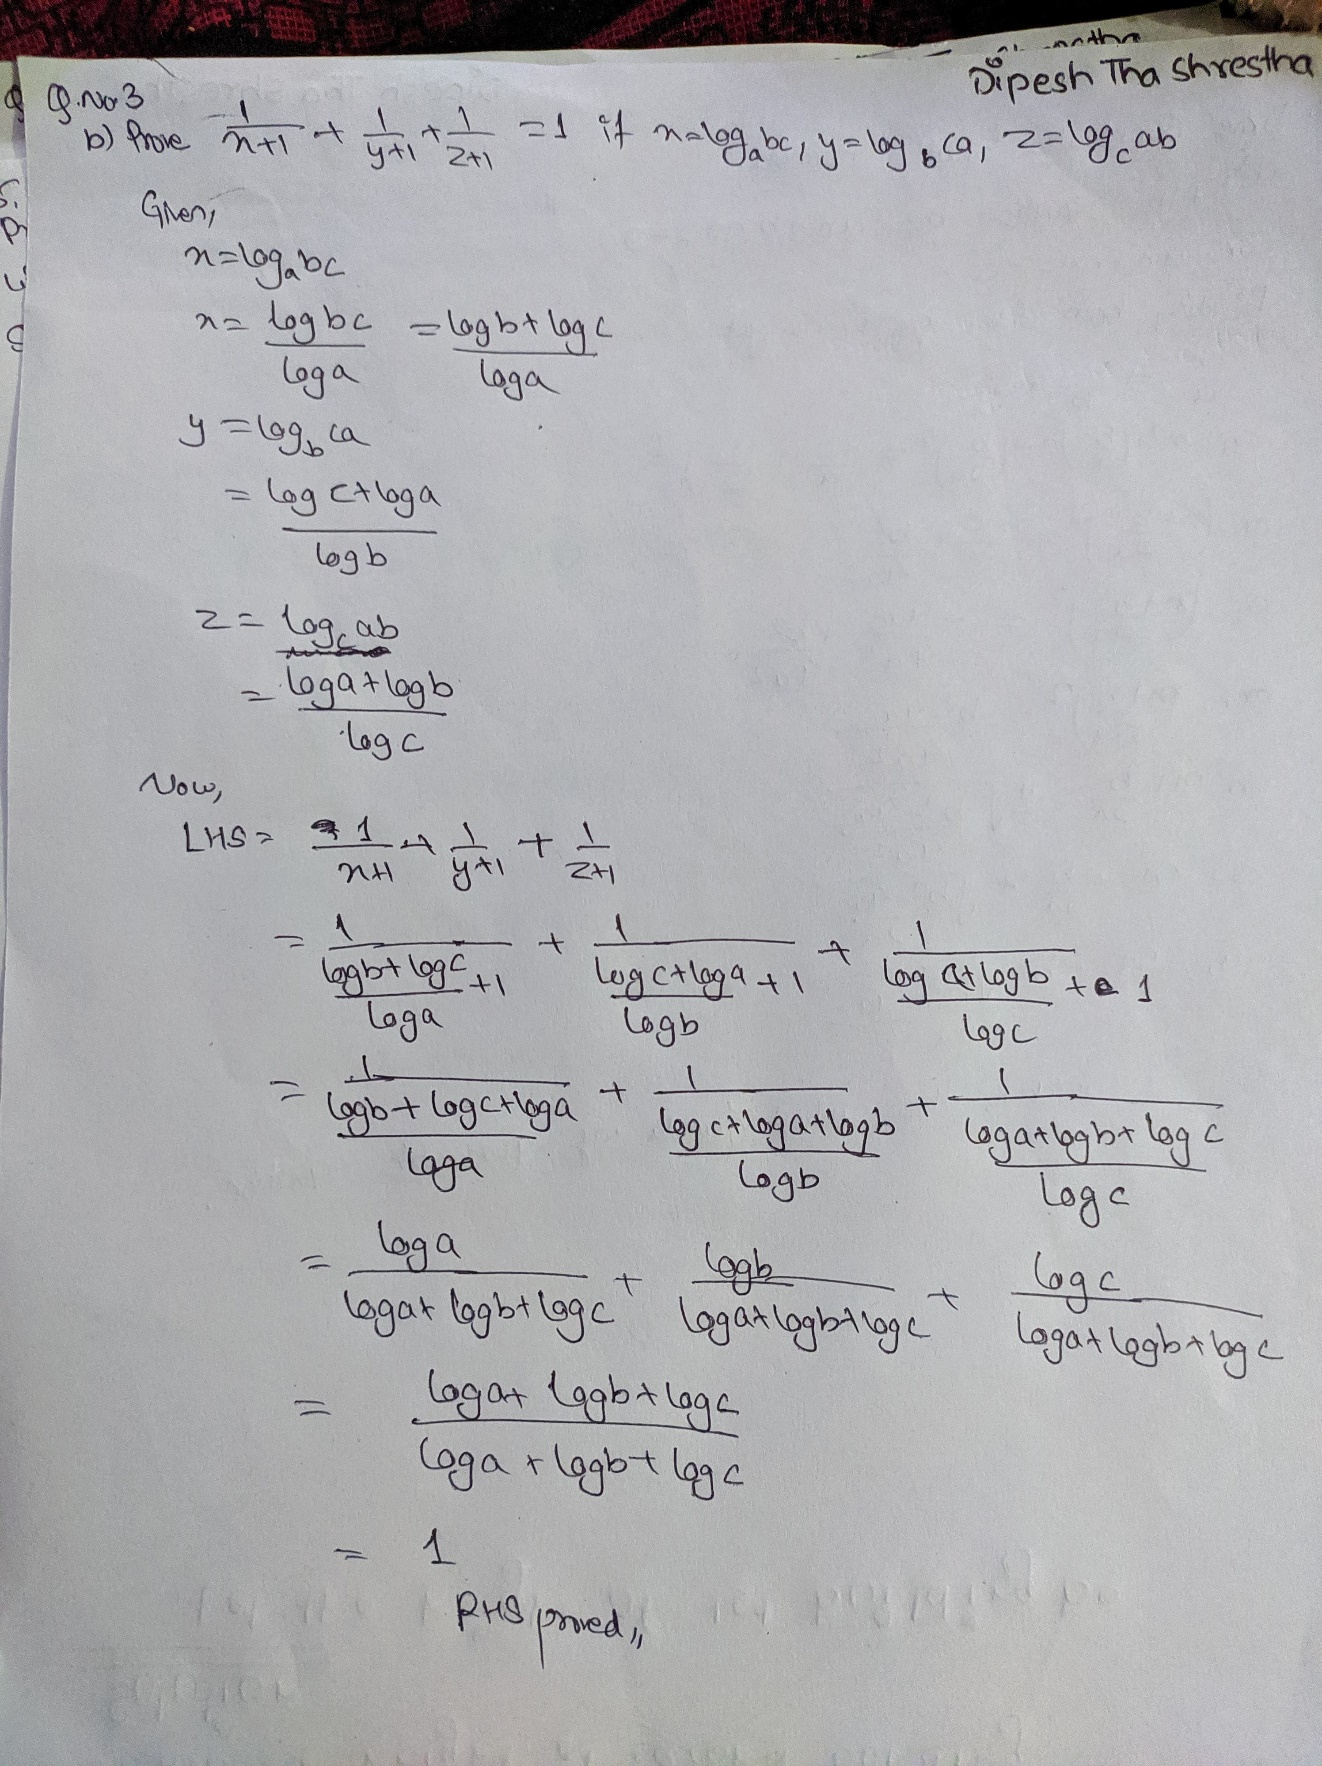 Dipesh Tha Shrestha
Q.No 3
b) Prove 1/(x+1) + 1/(y+1) + 1/(z+1) = 1 if x=log_a bc, y=log_b ca, z=log_c ab
Given,
x=log_a bc
x= log bc / log a = (log b+ log c) / log a
y = log_b ca
= (log c+log a) / log b
z = log_c ab
= (log a+log b) / log c
Now,
LHS = 1/(x+1) + 1/(y+1) + 1/(z+1)
= 1/((log b+ log c)/log a +1) + 1/((log c+log a)/log b +1) + 1/((log a+log b)/log c + 1)
= 1/((log b+ log c+log a)/log a) + 1/((log c+log a+log b)/log b) + 1/((log a+log b+ log c)/log c)
= log a/(log a+ log b+ log c) + log b/(log a+log b+log c) + log c/(log a+ log b+log c)
= (log a+ log b+log c)/(log a + log b+ log c)
= 1
RHS proved,,